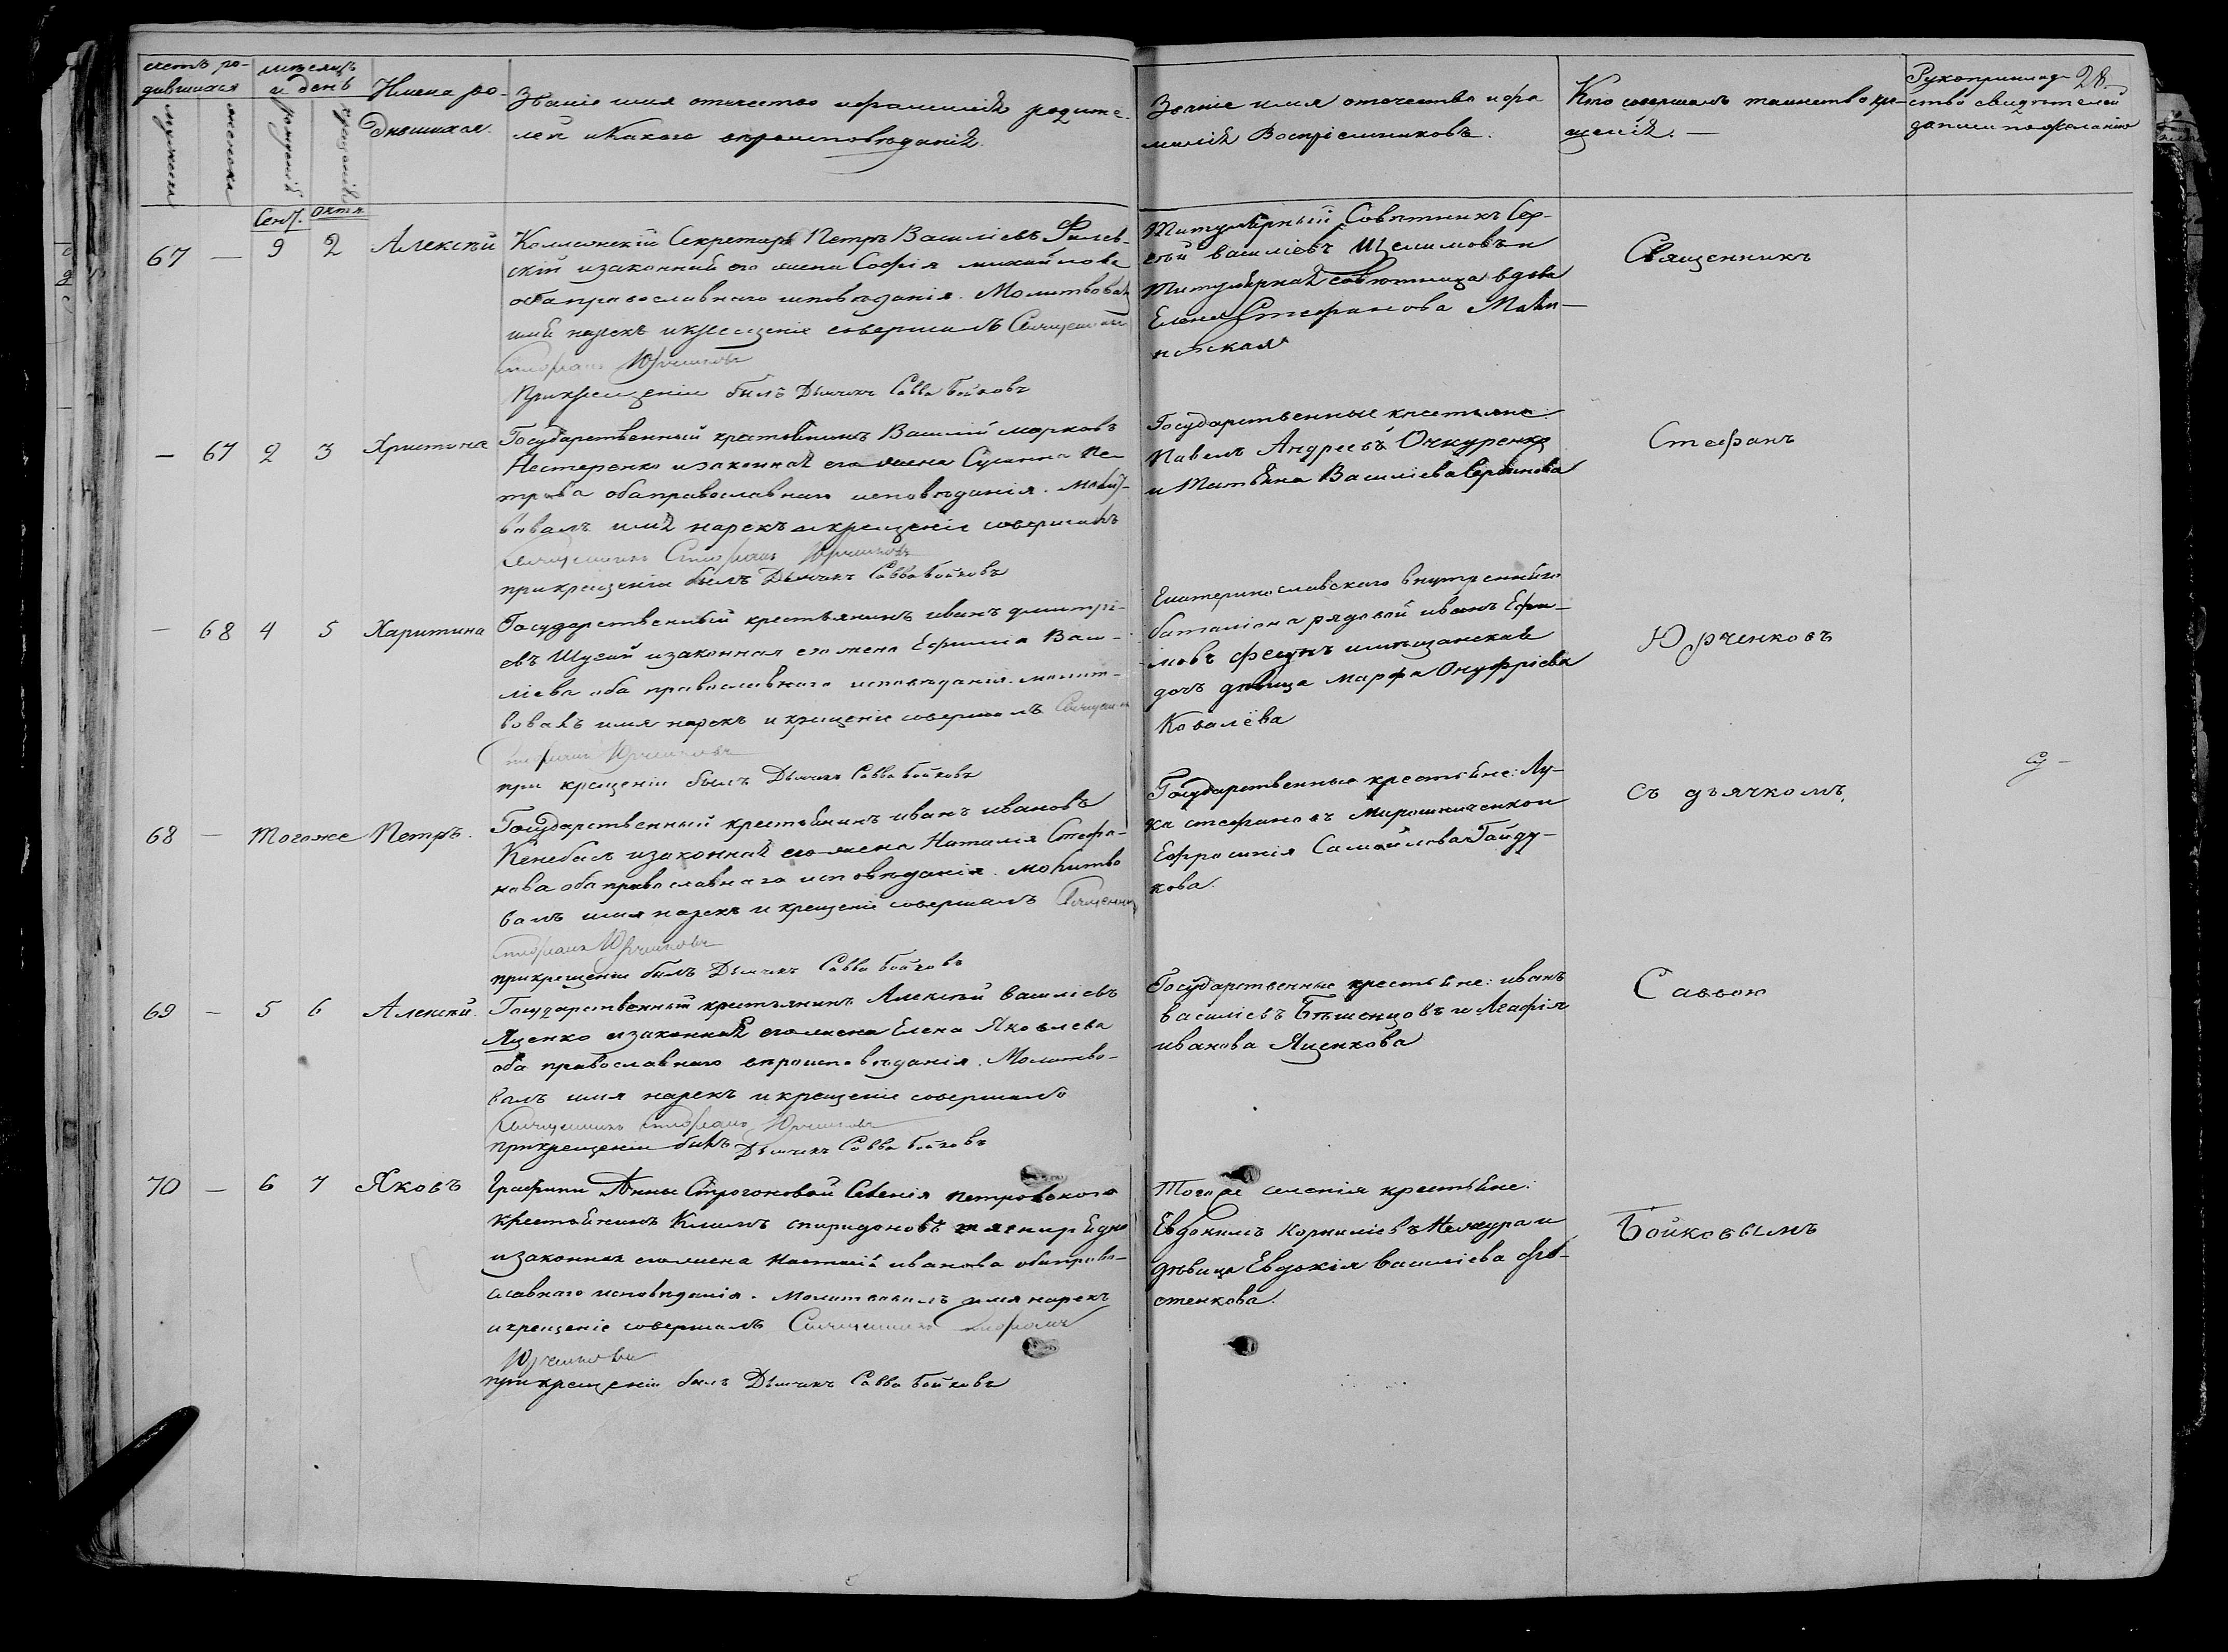 счетъ ро-
дившихся
мужеска
женска
мѣсяцъ
и день
рожденія
крещенія
Имена ро-
дившихся.
Званіе имя отчество и фамилія родите-
лей и какого вѣроисповѣданія.
Званіе имя отечество и фа
милія Воспріемниковъ.
Кто совершалъ таинство кре-
щенія. —
Рукоприклад- 28
ство свидѣтелей
записи по желанію
Сент. Октя.
67 — 9 2 Алексѣй
Коллежскій Секретарь Петръ Василіевъ
скій и законная его жена Софія михайлова
оба православнаго исповѣданія. Молитвовалъ
имя нарекъ и крещеніе совершалъ Священникъ
Стефанъ Юрченковъ
При крещеніи былъ Дьячекъ Савва Бойковъ
Титулярный Совѣтникъ Сер-
гѣй василіевъ и
Титулярная совѣтница вдова
Елена Стефанова
Священникъ
— 67 2 3 Христина
Государственный крестьянинъ Василій марковъ
Нестеренко и законная его жена Сусанна Пе-
трова оба православнаго исповѣданія. Молит-
вовалъ имя нарекъ и крещеніе совершалъ
Священникъ Стефанъ Юрченковъ
при крещеніи былъ Дьячекъ Савва Бойковъ
Государственные крестьяне
Павелъ Андреевъ Очкуренко
и Татьяна Василіева
Стефанъ
— 68 4 5 Харитина
Государственный крестьянинъ иванъ дмитрі-
евъ и законная его жена Ефимія Васи-
ліева оба православнаго исповѣданія. молит-
вовалъ имя нарекъ и крещеніе совершалъ Священникъ
Стефанъ Юрченковъ
при крещеніи былъ Дьячекъ Савва Бойковъ
Екатеринославскаго внутренняго
баталіона рядовой иванъ Ефи-
мовъ и мѣщанская
дочь дѣвица марфа Онуфріева
Ковалёва
Юрченковъ
68 — Тогоже Петръ.
Государственный крестьянинъ иванъ ивановъ
и законная его жена Наталія Стефа-
нова оба православнаго исповѣданія. молитво
валъ имя нарекъ и крещеніе совершалъ Священникъ
Стефанъ Юрченковъ
при крещеніи былъ Дьячекъ Савва Бойковъ
Государственные крестьяне: Лу-
ка стефановъ Мирошниченко и
Ефросинія Самойлова Гайду-
кова.
съ дьячкомъ,
69 — 5 6 Алексѣй.
Государственный крестьянинъ Алексѣй василіевъ
Яценко и законная его жена Елена Яковлева
оба православнаго вѣроисповѣданія. Молитво-
валъ имя нарекъ и крещеніе совершалъ
Священникъ Стефанъ Юрченковъ
при крещеніи былъ Дьячекъ Савва Бойковъ
Государственные крестьяне: иванъ
василіевъ и Агафія
иванова Яценкова
Саввою
70 — 6 7 Яковъ
Графини Анны Строгоновой Селенія петровского
крестьянинъ Климъ спиридоновъ
и законная его жена Наталія иванова оба право-
славнаго исповѣданія. Молитвовалъ имя нарекъ
и крещеніе совершалъ Священникъ Стефанъ
Юрченковъ
при крещеніи былъ Дьячекъ Савва Бойковъ
Тогоже селенія крестьяне:
Евдокимъ корниліевъ и
дѣвица Евдокія василіева
стенкова.
Бойковымъ